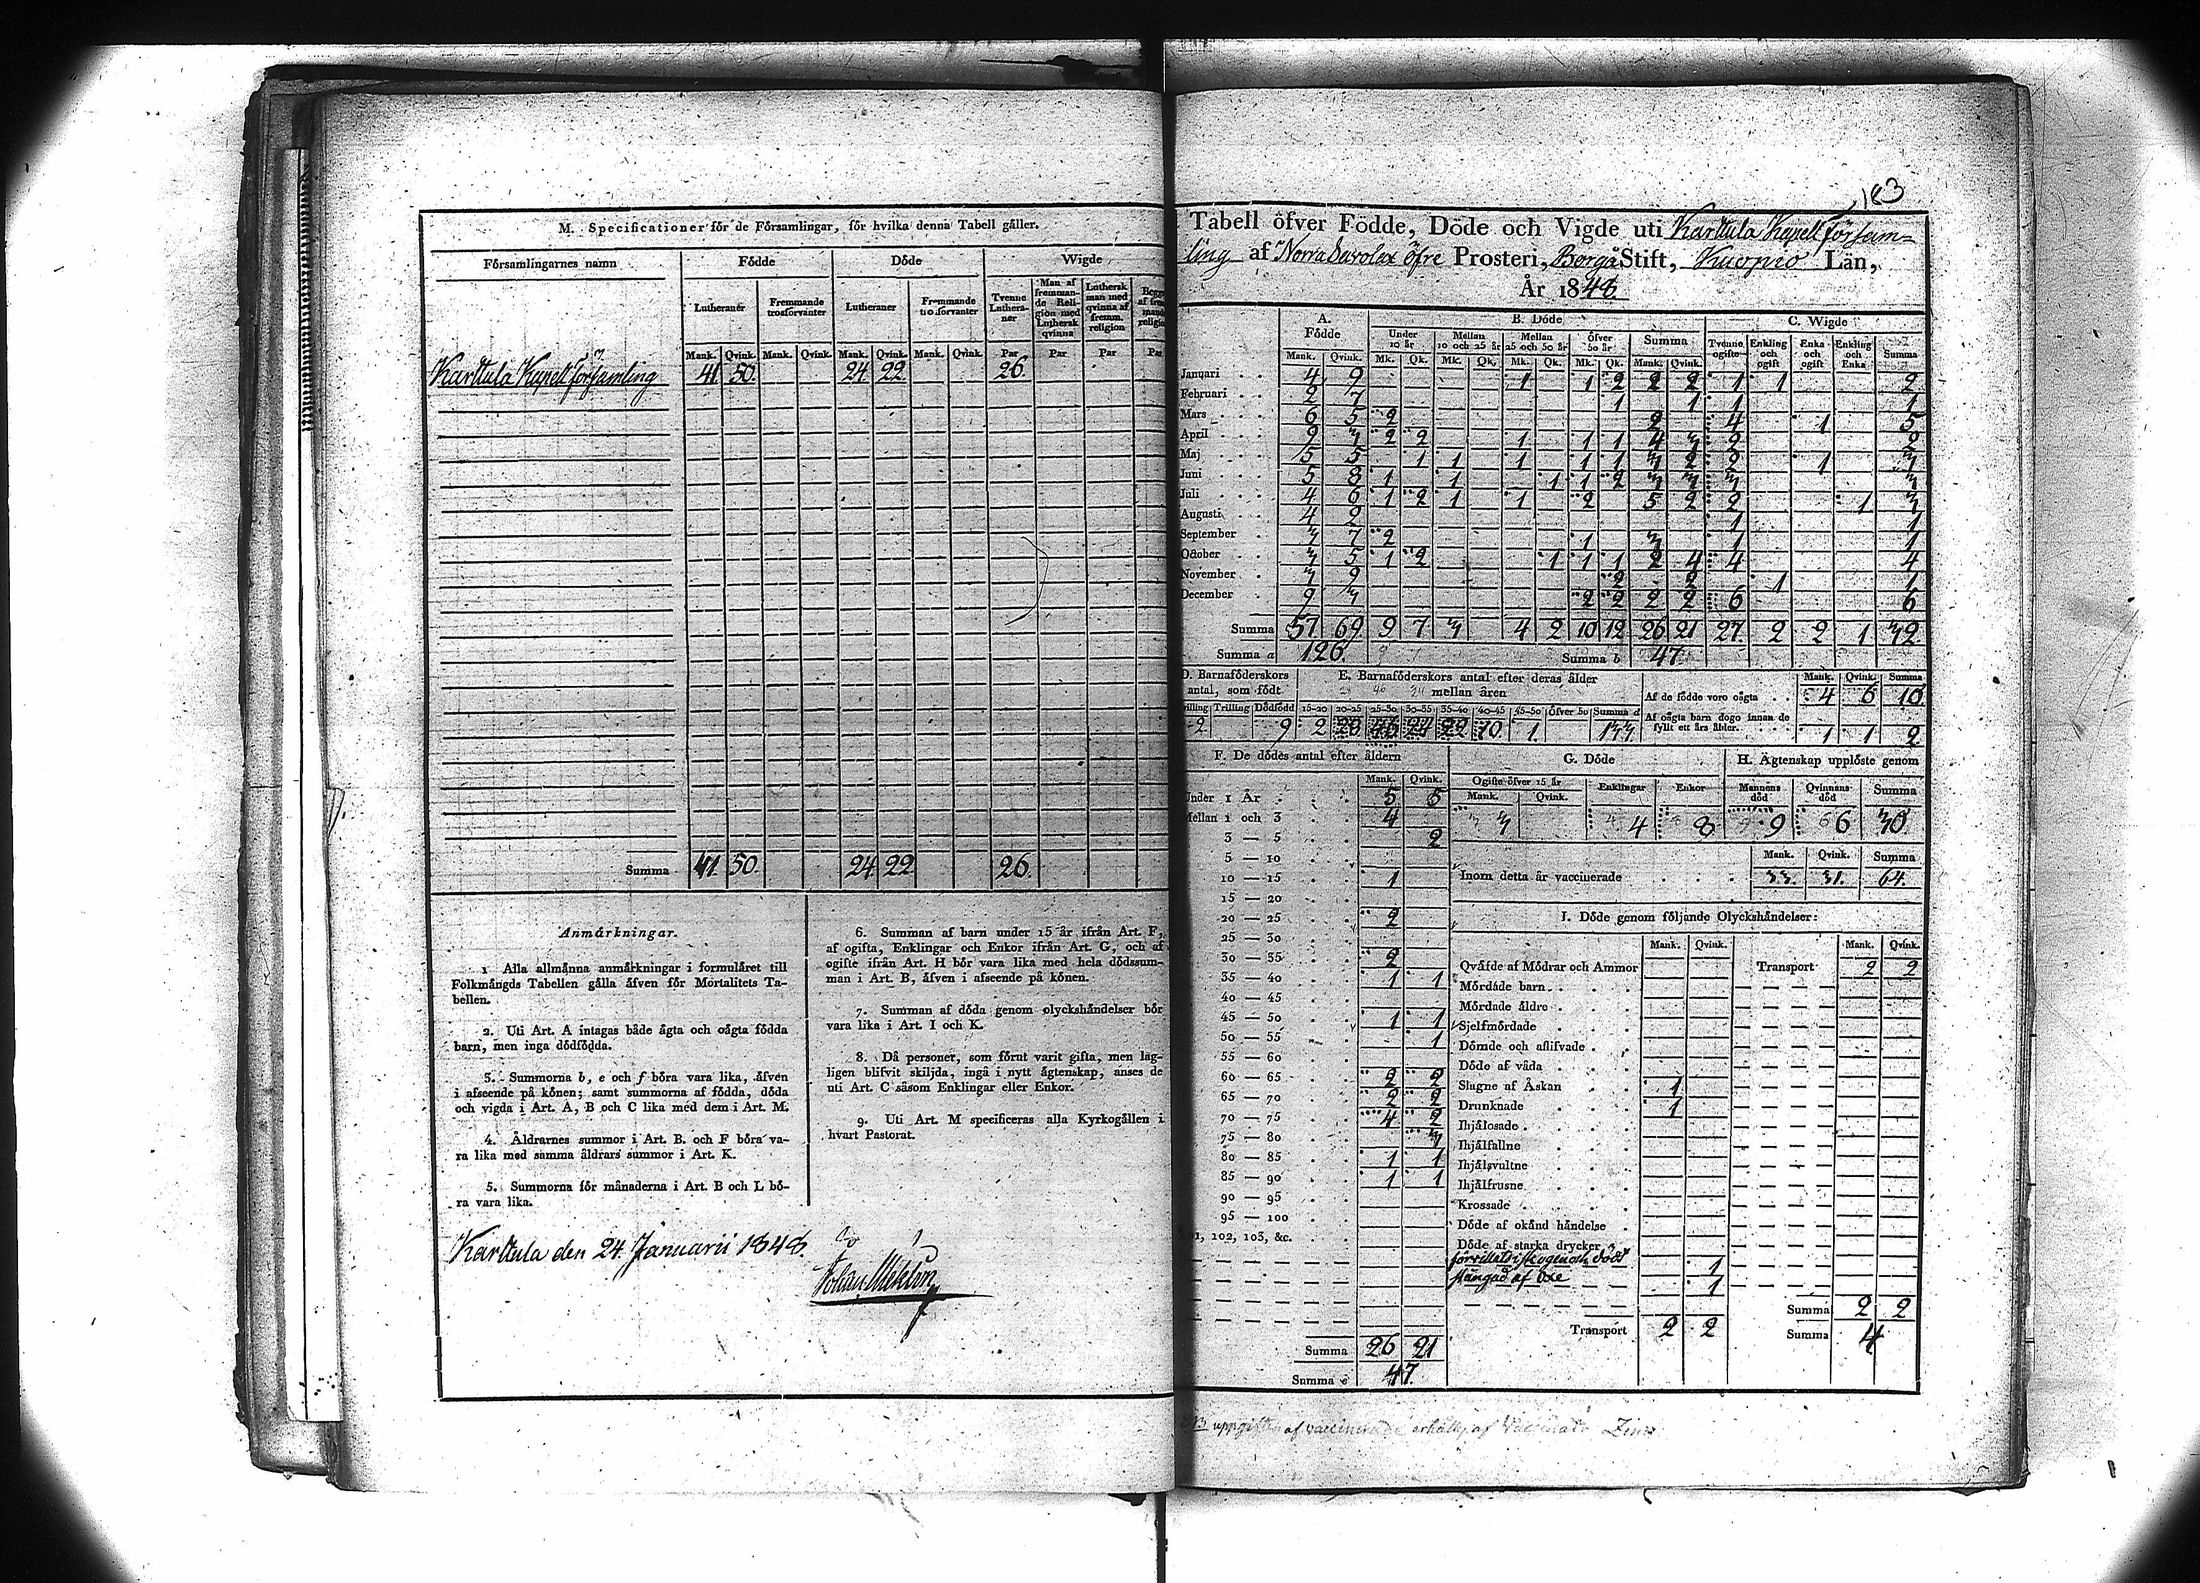 M. Specificationer för de Församlingar, för hvilka denna Tabell gäller.
Församlingarnes namn Födde Döde Wigde
Lutheraner Fremmande trosförvanter Lutheraner Fremmande trosförvanter Tvenne Lutheraner Man af fremmande Religion med Luthersk qvinna Luthersk man med qvinna af fremm. religion
Mank. Qvink. Mank. Qvink. Mank. Qvink. Mank. Qvink. Par Par Par Par
Karttula Kapell församling 41 50. 24 22. 26.
Summa 41. 50. 24 22. 26.
Anmärkningar.
1. Alla allmänna anmärkningar i formuläret till
Folkmängds Tabellen gälla äfven för Mortalitets Ta-
bellen.
2. Uti Art. A intagas både ägta och oägta födda
barn, men inga dödfödda.
3. Summorna b, e och f böra vara lika, äfven
i afseende på könen; samt summorna af födda, döda
och vigda i Art. A, B och C lika med dem i Art. M.
4. Åldrarnes summor i Art. B. och F böra va-
ra lika med samma åldrars summor i Art. K.
5. Summorna för månaderna i Art. B och L bö-
ra vara lika.
6. Summan af barn under 15 år ifrån Art. F,
af ogifta, Enklingar och Enkor ifrån Art. G, och af
ogifte ifrån Art. H bör vara lika med hela dödssum-
man i Art. B, äfven i afseende på könen.
7. Summan af döda genom olyckshändelser bör
vara lika i Art. I och K.
8. Då personer, som förut varit gifta, men lag-
ligen blifvit skiljda, ingå i nytt ägtenskap, anses de
uti Art. C såsom Enklingar eller Enkor.
9. Uti Art. M specificeras alla Kyrkogällen i
hvart Pastorat.
Karttula den 24. Januarii 1848.
Johan
183
Tabell öfver Födde, Döde och Vigde uti Karttula Kapell församling
af Norra Savolax öfre Prosteri, Borgå Stift, Kuopio Län,
År 1848.
A. Födde B. Döde C. Wigde
Under 10 år Mellan 10 och 25 år Mellan 25 och 50 år Öfver 50 år Summa Tvenne ogifte Enkling och ogift Enka och ogift Enkling och Enka Summa
Mank. Qvink. Mk. Qk. Mk. Qk. Mk. Qk. Mk. Qk. Mank. Qvink.
Januari 4 9 1 1 2 2 2 1 1 2
Februari 2 7 1 1 1 1
Mars 6 5 2 2 4 1 5
April 9 3 2 2 1 1 1 4 3 2 2
Maj 5 5 1 1 1 1 1 3 2 2 1 3
Juni 5 8 1 1 1 1 2 3 3 3 3
Juli 4 6 1 2 1 1 2 5 2 2 1 3
Augusti 4 2 1 1
September 3 7 2 1 3 1 1
October 3 5 1 2 1 1 1 2 4 4 4
November 3 9 2 2 1 1
December 9 3 2 2 2 2 6 6
Summa 57. 69. 9 7 3 4 2 10 12 26 21 27. 2 2 1 32
Summa a 126. Summa b 47.
D. Barnaföderskors antal, som födt E. Barnaföderskors antal efter deras ålder mellan åren
Trilling Dödfödd 15-20 20-25 25-30 30-35 35-40 40-45 45-50 Öfver 50 Summa d
2. 9 2 10. 1. 133.
Mank. Qvink. Summa
Af de födde voro oägta 4 6 10.
Af oägta barn dogo innan de fyllt ett års ålder. 1 1 2
F. De dödes antal efter åldern
Mank. Qvink.
Under 1 År 5 5
Mellan 1 och 3 4
3 — 5 2
5 — 10
10 — 15 1
15 — 20
20 — 25 2
25 — 30
30 — 35 2
35 — 40 1 1
40 — 45
45 — 50 1 1
50 — 55 1
55 — 60
60 — 65 2 2
65 — 70 2 2
70 — 75 4 2
75 — 80 3
80 — 85 1 1
85 — 90 1 1
90 — 95
95 — 100
102, 103, &c.
Summa 26 21
Summa e 47.
G. Döde H. Ägtenskap upplöste genom
Ogifte öfver 15 år Enklingar Enkor Mannens död Qvinnans död Summa
Mank. Qvink.
3 4 8 9 6 30.
Mank. Qvink. Summa
Inom detta år vaccinerade 33. 31. 64.
I. Döde genom följande Olyckshändelser:
Mank. Qvink. Mank. Qvink.
Qväfde af Mödrar och Ammor Transport 2 2
Mördade barn
Mördade äldre
Sjelfmördade
Dömde och aflifvade
Döde af våda
Slagne af Åskan 1
Drunknade 1
Ihjälosade
Ihjälfallne
Ihjälsvultne
Ihjälfrusne
Krossade
Döde af okänd händelse
Döde af starka drycker
1
stångad af Oxe 1
Summa 2 2
Transport 2 2 Summa 4
af erhållp. af